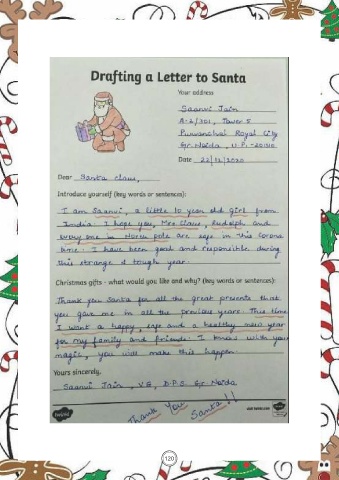 Drafting a Letter to Santa
Your address
Saanvi Jain
A-2/301, Tower 5
Purvanchal Royal City
Gr. Noida, U.P.-
Date 22/12/2020
Dear Santa Claus,
Introduce yourself (key words or sentences):
I am Saanvi, a little 10 year old girl from
India. I hope you, Mrs. Claus, Rudolph and
every one in North pole are safe in this corona
time. I have been good and responsible during
this strange & tough year.
Christmas gifts - what would you like and why? (key words or sentences):
Thank you Santa for all the great presents that
you gave me in all the previous years. This time
I want a happy, safe and a healthy new year
for my family and friends. I know with your
magic, you will make this happen.
Yours sincerely,
Saanvi Jain, D.P.S. Gr. Noida
Thank You Santa!!
twinkl
120